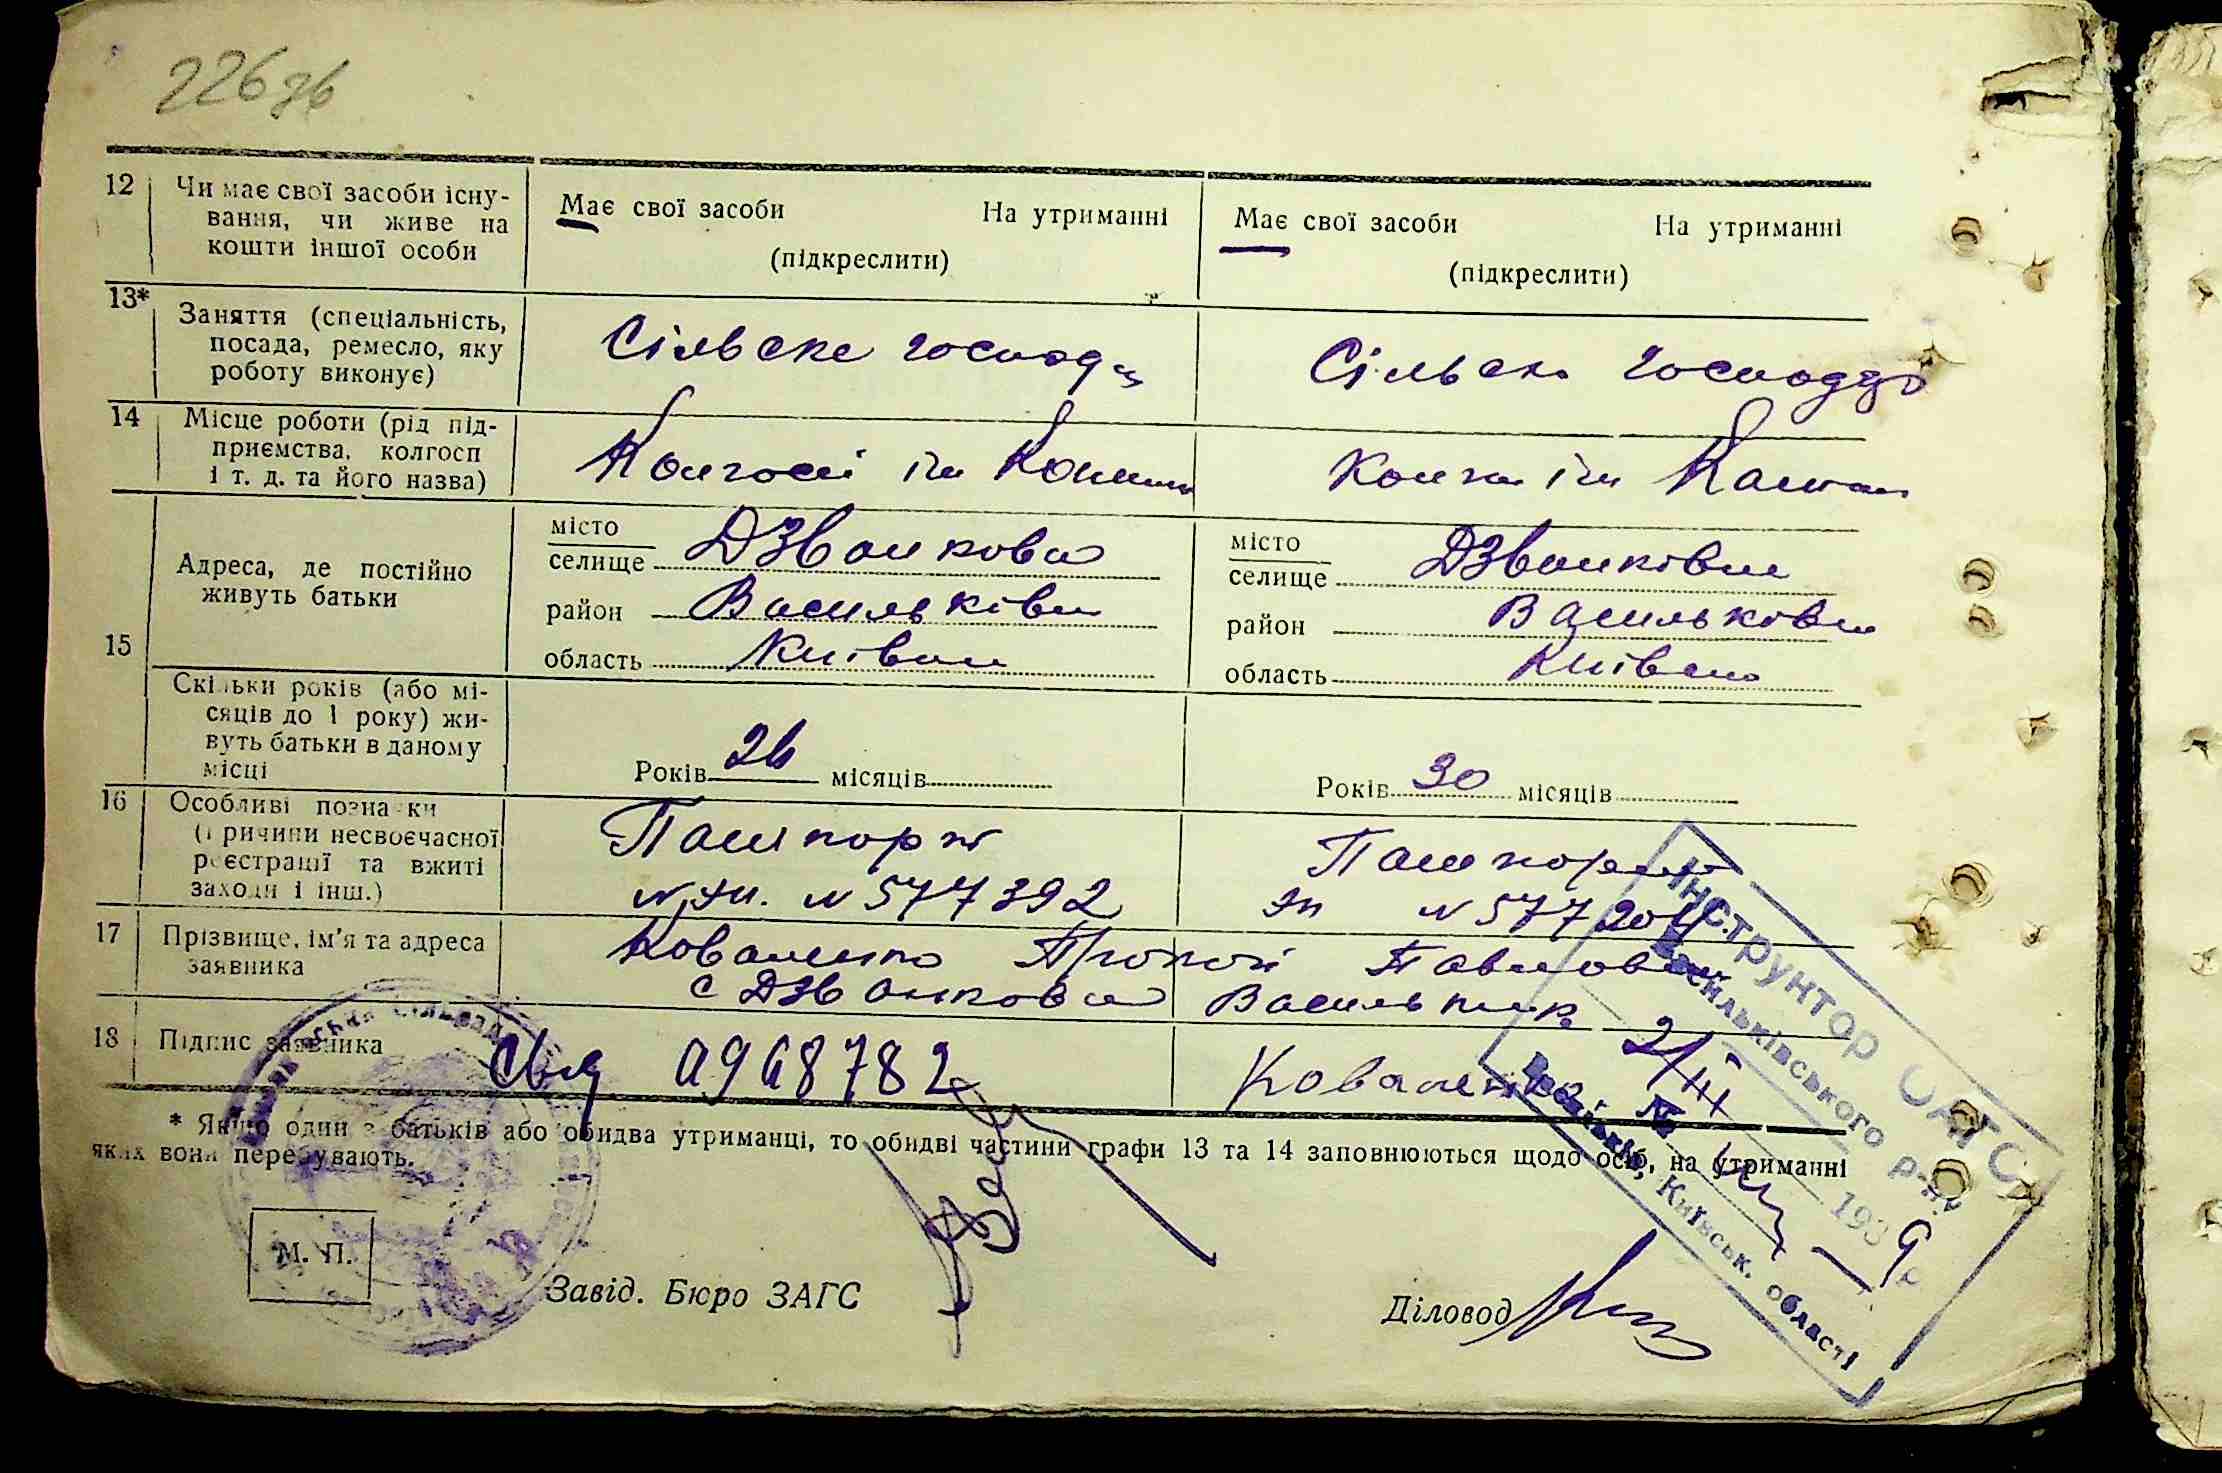 226 зв
12 Чи має свої засоби існу-
вання, чи живе на
кошти іншої особи
Має свої засоби На утриманні
(підкреслити)
Має свої засоби На утриманні
(підкреслити)
13* Заняття (спеціальність,
посада, ремесло, яку
роботу виконує)
Сільске господ
Сільск господ
14 Місце роботи (рід під-
приємства, колгосп
і т. д. та його назва)
Колгосп ім
ім
15 Адреса, де постійно
живуть батьки
місто
селище Дзвонкова
район Васильків
область Київ
місто
селище Дзвонків
район Васильків
область Київ
Скільки років (або мі-
сяців до 1 року) жи-
вуть батьки в даному
місці
Років 26 місяців
Років 30 місяців
16 Особливі позначки
(причини несвоєчасної
реєстрації та вжиті
заходи і інш.)
Пашпорт
N 577392
Пашпорт
N 577204
17 Прізвище, ім'я та адреса
заявника
Коваленко Прокоп Павлович
с Дзвонкова Васильк
18 Підпис заявника
0968782
Коваленко
2/III
* Якщо один з батьків або обидва утриманці, то обидві частини графи 13 та 14 заповнюються щодо осіб, на утриманні
яких вони перебувають.
М. П.
Завід. Бюро ЗАГС
Діловод
Інструктор ОАГС
Васильківського р-ну
№
1939
Васильків, Київськ. області